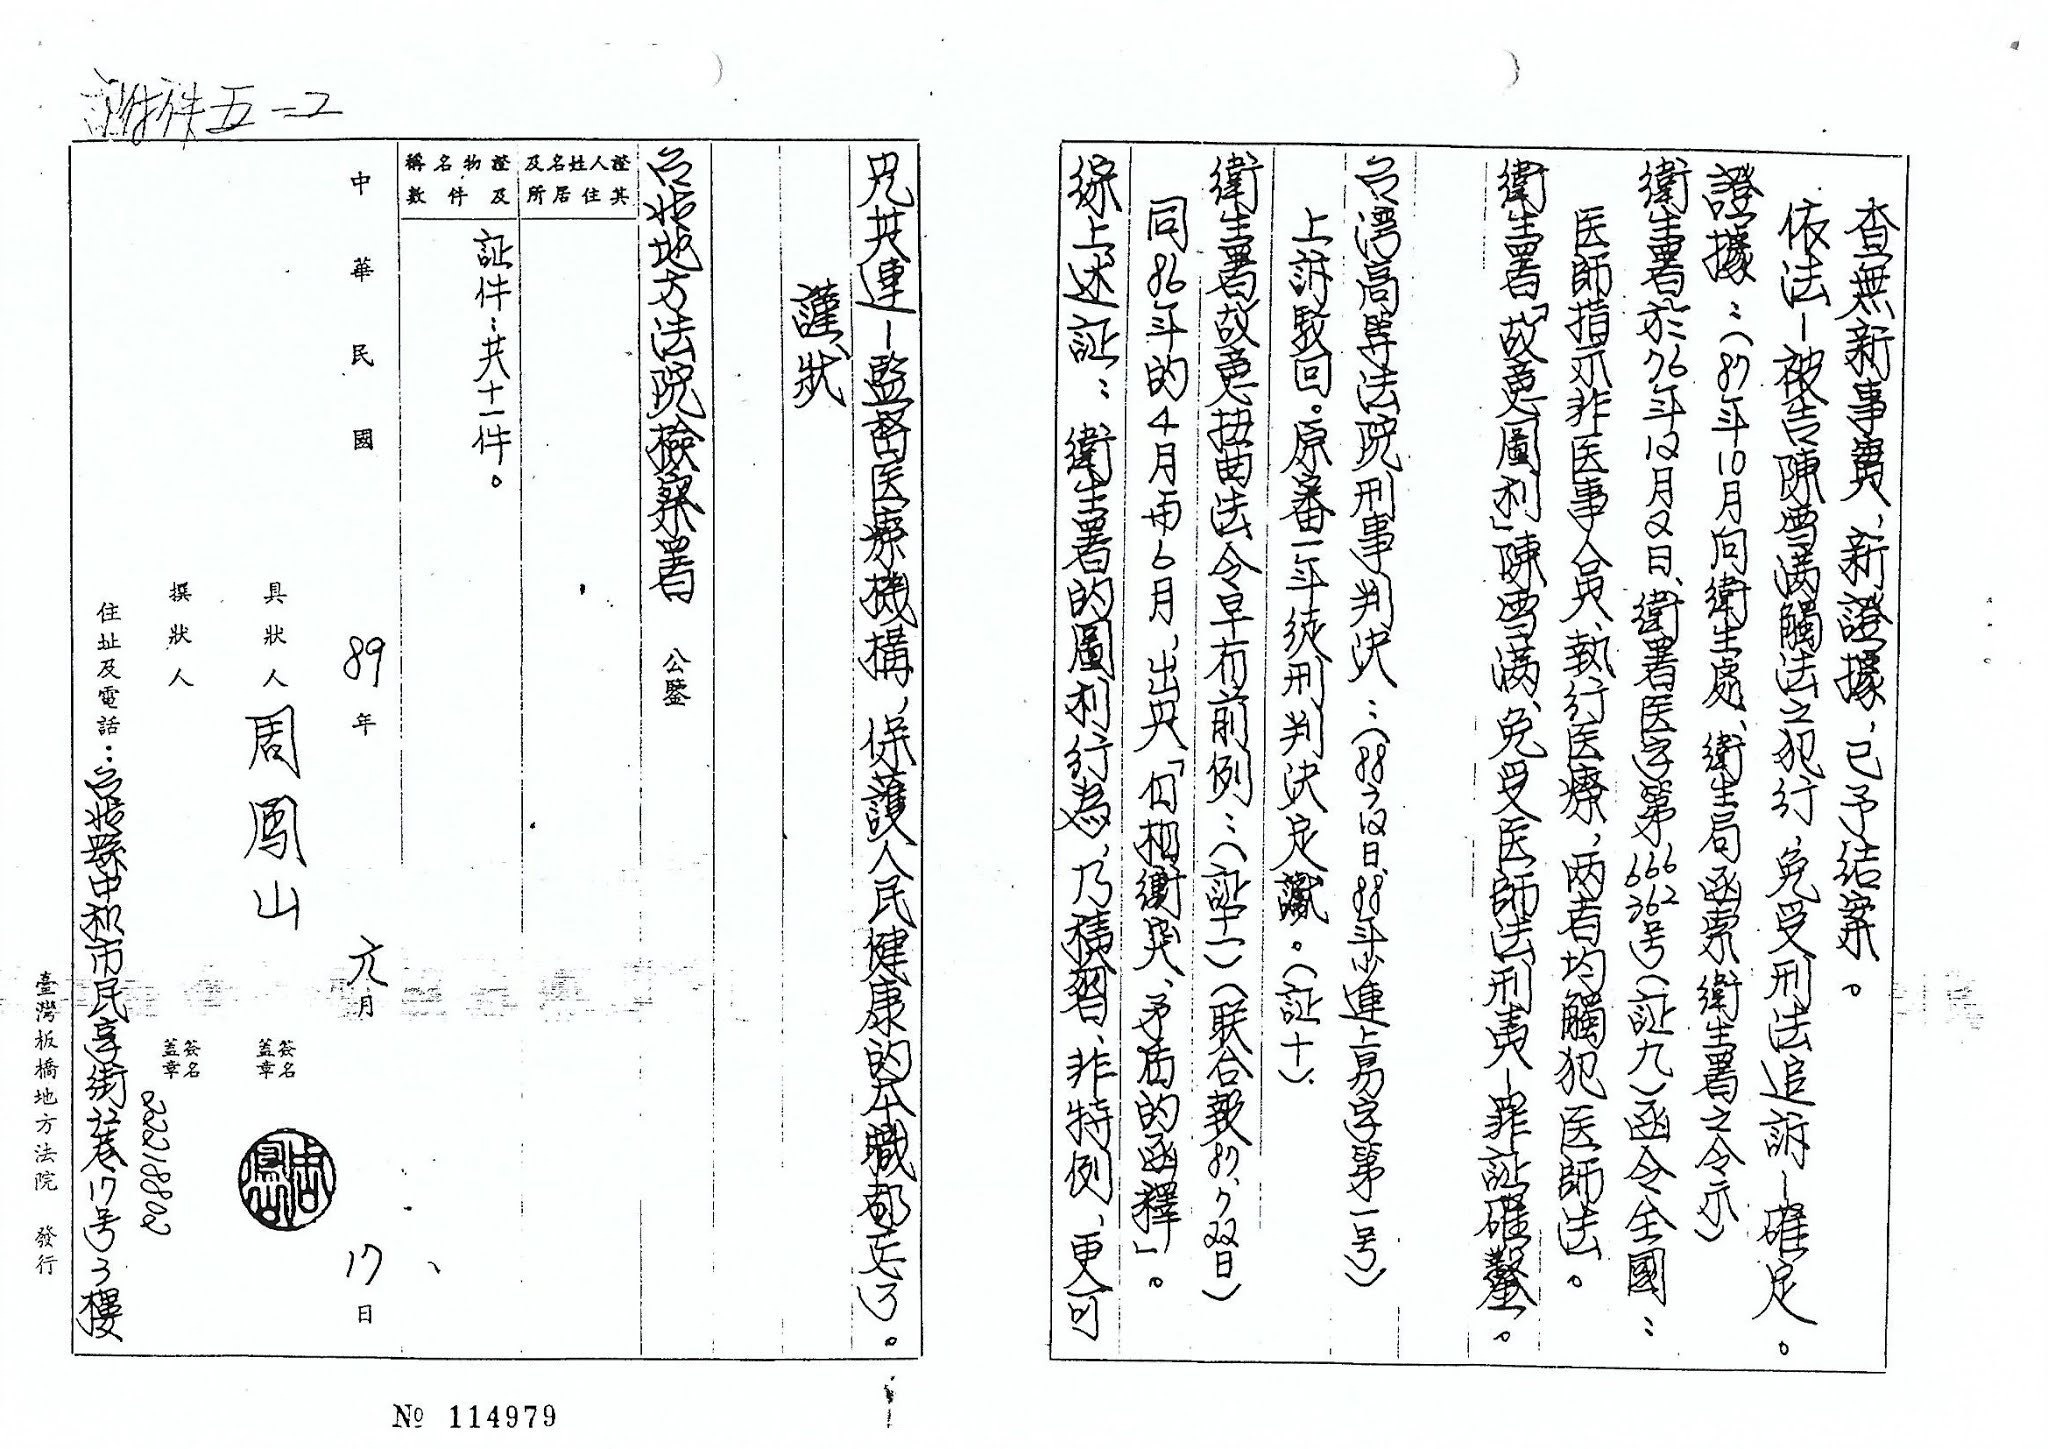 附件五-2
查無新事實、新證據，已予結案。
依法－被告陳雪满觸法之犯行，免受刑法追訴－確定。
證據：（87年10月向衛生處、衛生局函索衛生署之令示）
衛生署於76年12月2日、衛署医字第666362号（証九）函令全國：
医師指示非医事人員、執行医療，两者均觸犯医師法。
衛生署「故意圖利」陳雪满、免受医師法、刑責－罪証確鑿。
台湾高等法院刑事判决：（88、12日、88年少連上易字第一号）
上訴駁回。原審一年徒刑判决定讞。（証十）
衛生署故意扭曲法令早有前例：（証十一）（联合報87、7、22日）
同86年的4月兩6月，出爾「自相衝突、矛盾的函釋」。
綜上述証：衛生署的圖利行為，乃積習、非特例，更可
見其連－監督医療機構，保護人民健康的本職都忘了。
謹狀
台北地方法院檢察署 公鑒
證人姓名及其住居所
證物名稱及件數
証件：共十一件。
中華民國89年元月17日
具狀人 周鳳山 簽名蓋章
撰狀人 簽名蓋章
22218802
住址及電話：台北縣中和市民享街22巷17号3樓
臺灣板橋地方法院 發行
№ 114979